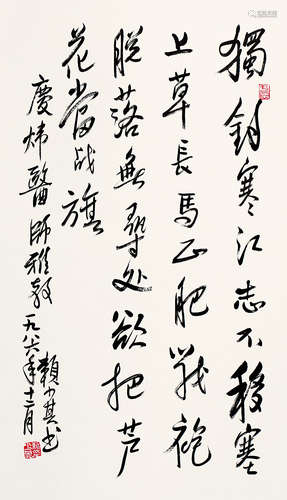 獨釣寒江志不移塞
上草長馬正肥戰袍
脱落無尋处欲把芦
花當战旗
慶炜醫師雅教
一九八六年十二月
賴少其书